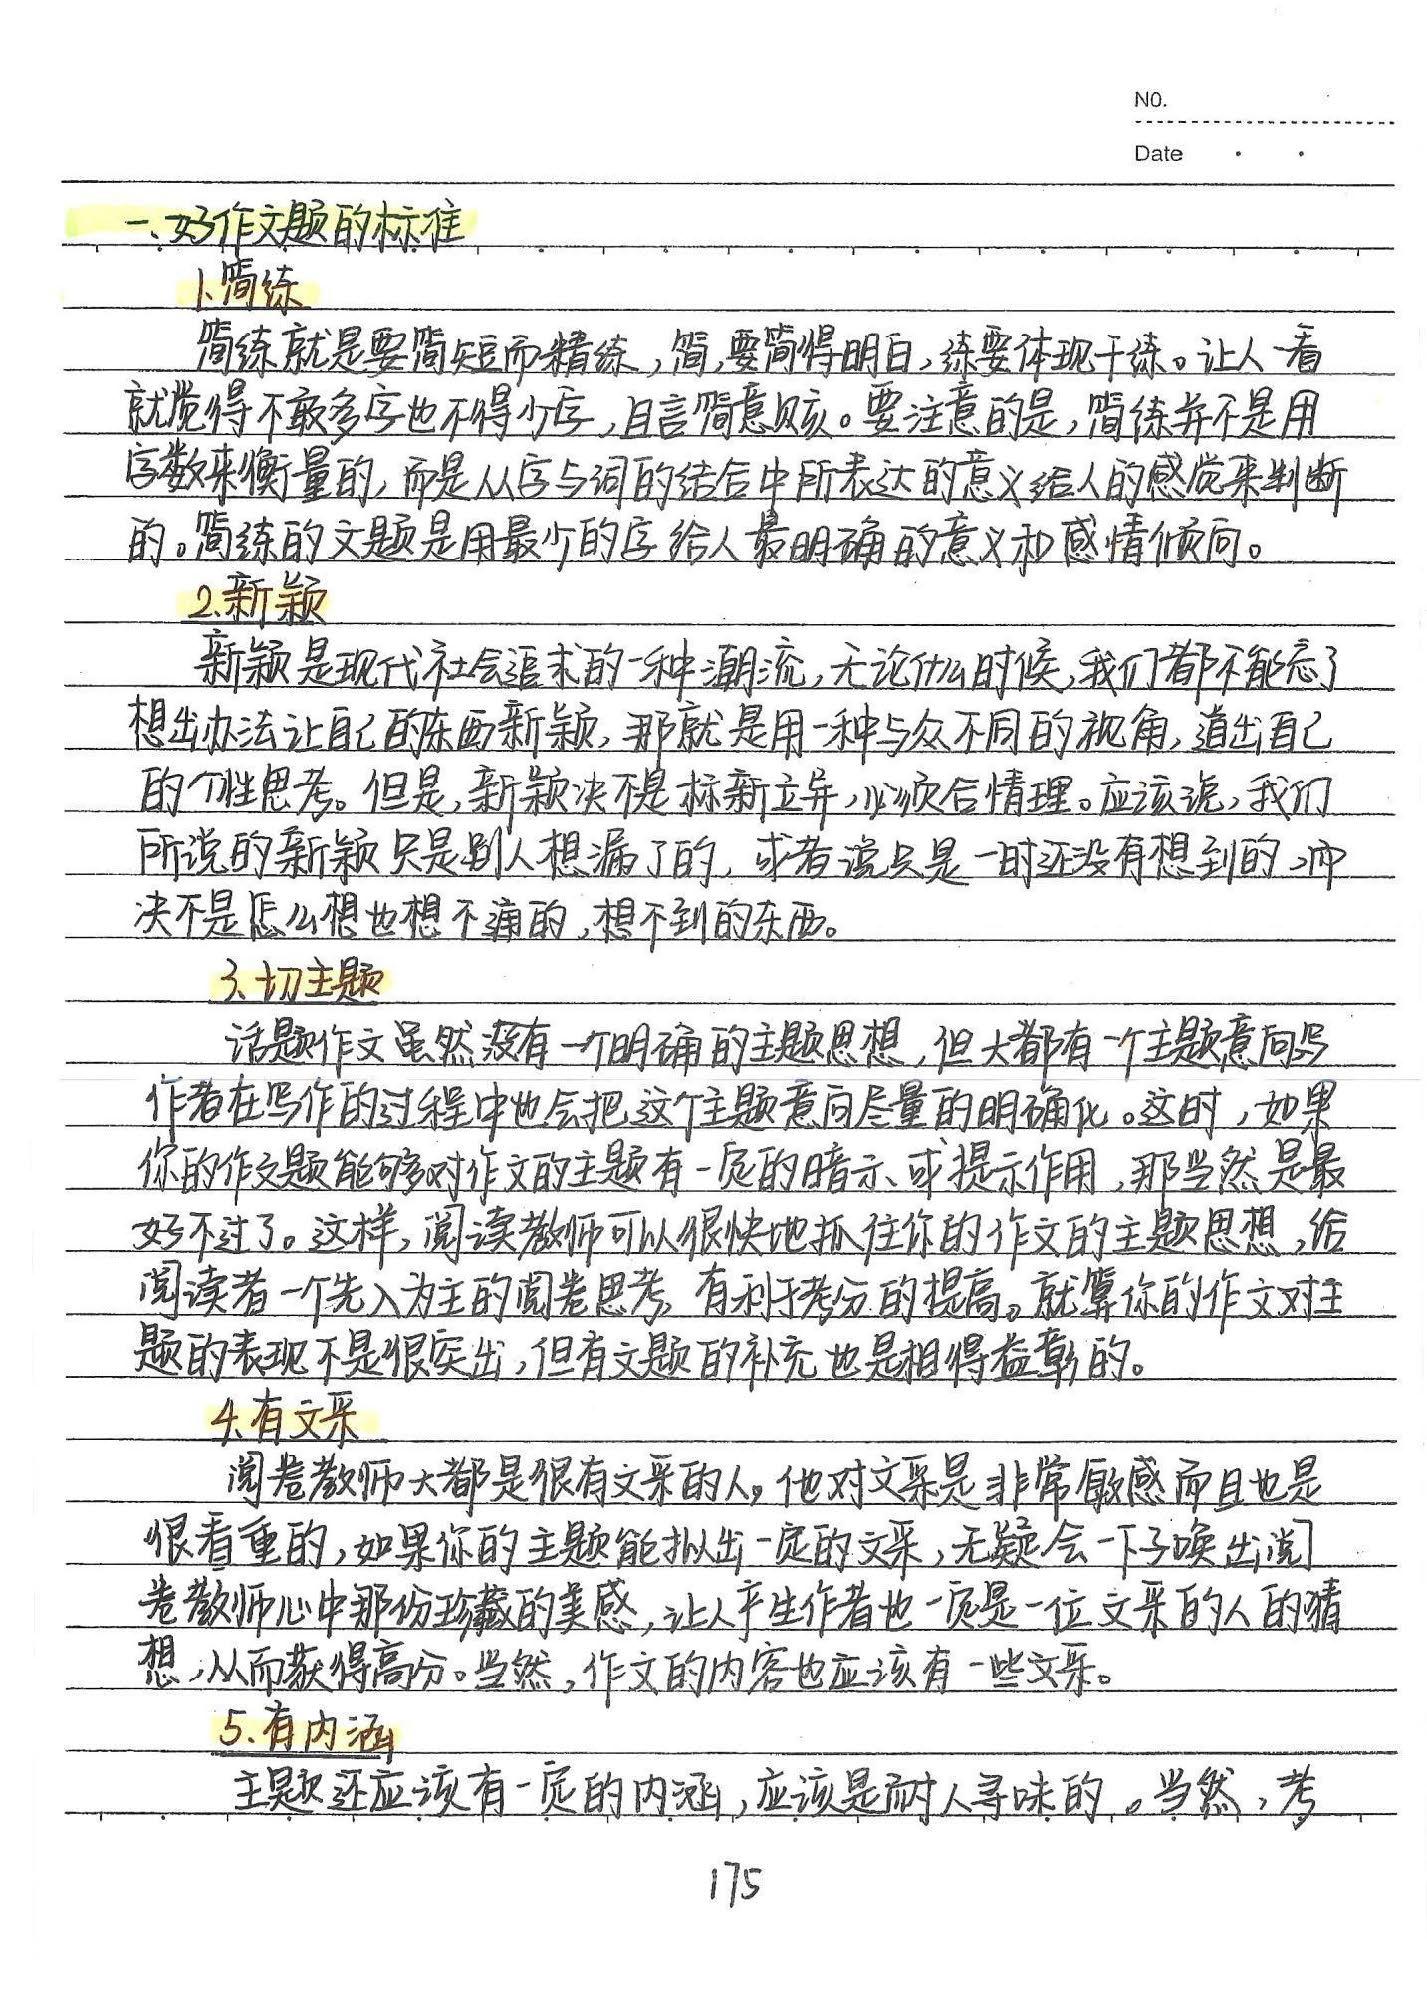 NO.
Date
一、好作文题的标准
1、简练
简练就是要简短而精练，简，要简得明白，练要体现干练。让人一看
就觉得不敢多字也不得少字，且言简意赅。要注意的是，简练并不是用
字数来衡量的，而是从字与词的结合中所表达的意义给人的感觉来判断
的。简练的文题是用最少的字给人最明确的意义和感情倾向。
2、新颖
新颖是现代社会追求的一种潮流，无论什么时候，我们都不能忘了
想出办法让自己的东西新颖，那就是用一种与众不同的视角，道出自己
的个性思考。但是，新颖决不是标新立异，必须合情理。应该说，我们
所说的新颖只是别人想漏了的，或者说只是一时还没有想到的，而
决不是怎么想也想不通的，想不到的东西。
3、切主题
话题作文虽然没有一个明确的主题思想，但大都有一个主题意向写
作者在写作的过程中也会把这个主题意向尽量的明确化。这时，如果
你的作文题能够对作文的主题有一定的暗示、或提示作用，那当然是最
好不过了。这样，阅读教师可以很快地抓住你的作文的主题思想，给
阅读者一个先入为主的阅卷思考，有利于考分的提高。就算你的作文对主
题的表现不是很突出，但有文题的补充也是相得益彰的。
4、有文采
阅卷教师大都是很有文采的人，他对文采是非常敏感而且也是
很看重的，如果你的主题能拟出一定的文采，无疑会一下子唤出阅
卷教师心中那份珍藏的美感，让人产生作者也一定是一位文采的人的猜
想，从而获得高分。当然，作文的内容也应该有一些文采。
5、有内涵
主题还应该有一定的内涵，应该是耐人寻味的。当然，考
175